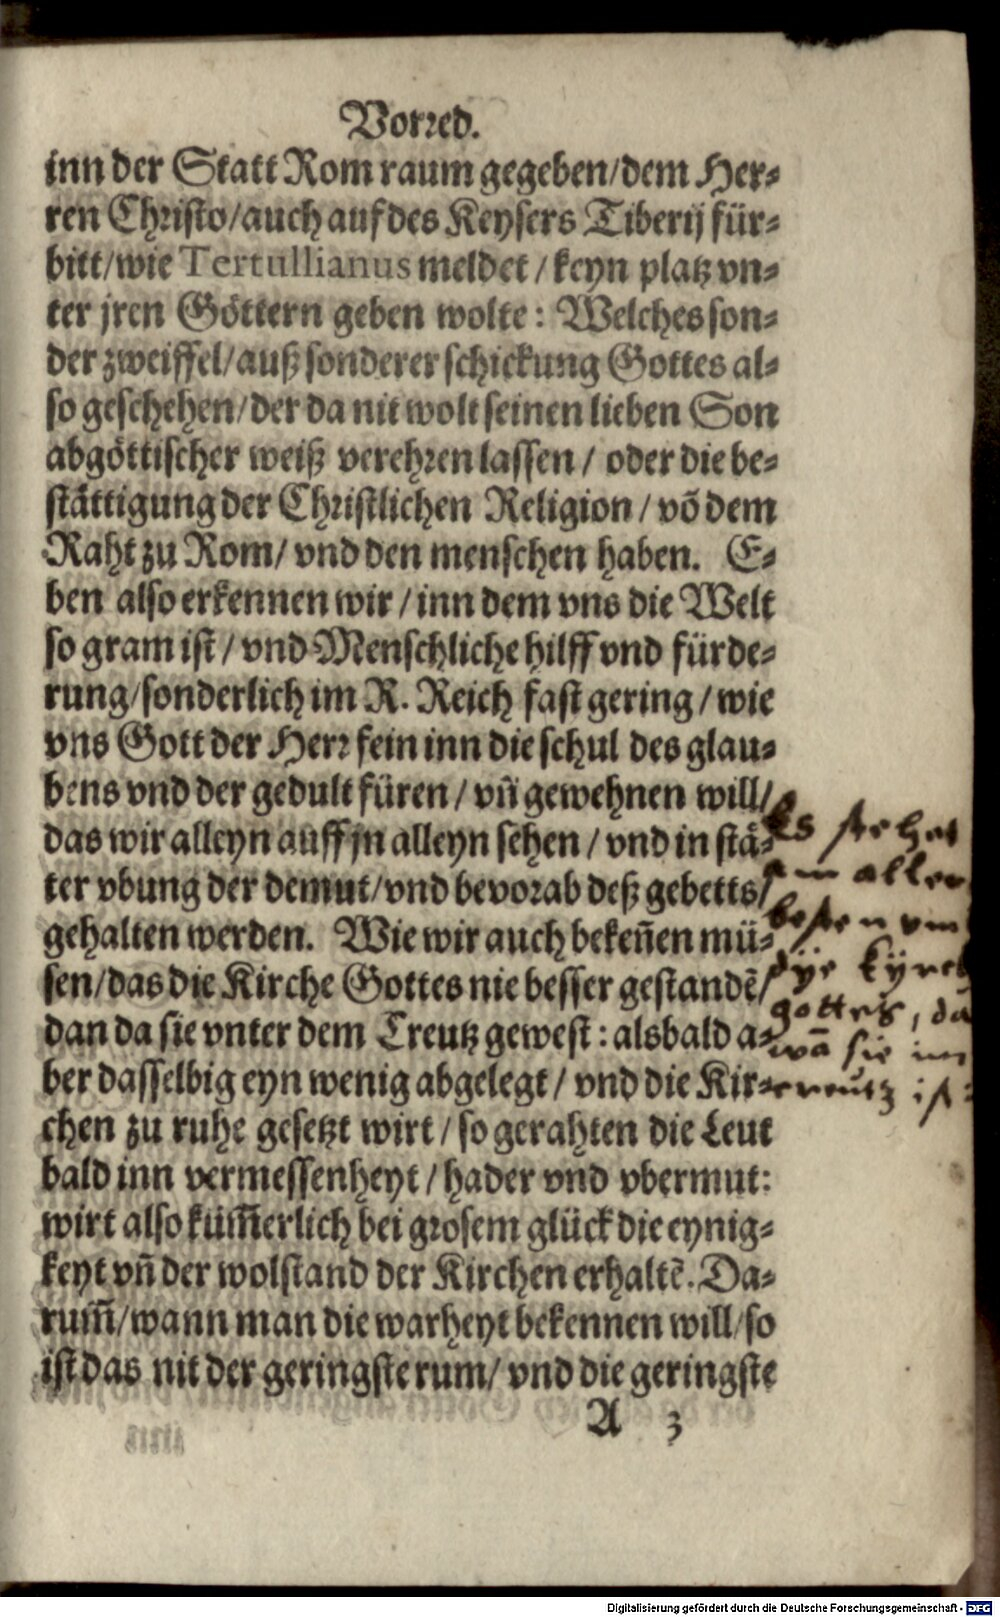 Vorred.
inn der Statt Rom raum gegeben/dem Her-
ren Christo/auch auf des Keysers Tiberij für-
bitt/wie Tertullianus meldet/keyn platz vn-
ter jren Göttern geben wolte: Welches son-
der zweiffel/auß sonderer schickung Gottes al-
so geschehen/der da nit wolt seinen lieben Son
abgöttischer weiß verehren lassen/oder die be-
stättigung der Christlichen Religion/võ dem
Raht zu Rom/vnd den menschen haben. E-
ben also erkennen wir/inn dem vns die Welt
so gram ist/vnd Menschliche hilff vnd fürde-
rung/sonderlich im R. Reich fast gering/wie
vns Gott der Herr fein inn die schul des glau-
bens vnd der gedult füren/vn̄ gewehnen will/
das wir alleyn auff jn alleyn sehen/vnd in stä-
ter vbung der demut/vnd bevorab deß gebetts/
gehalten werden. Wie wir auch beken̄en mü-
sen/das die Kirche Gottes nie besser gestandē/
dan da sie vnter dem Creutz gewest: alsbald a-
ber dasselbig eyn wenig abgelegt/vnd die Kir-
chen zu ruhe gesetzt wirt/so gerahten die Leut
bald inn vermessenheyt/hader vnd vbermut:
wirt also küm̄erlich bei grosem glück die eynig-
keyt vn̄ der wolstand der Kirchen erhaltē. Da-
rum̄/wann man die warheyt bekennen will/so
ist das nit der geringste rum/vnd die geringste
A 3
Es stehet
am aller
besten vm
dÿe kÿrch
gottes, dā
wā sie im
creutz ist
Digitalisierung gefördert durch die Deutsche Forschungsgemeinschaft - DFG